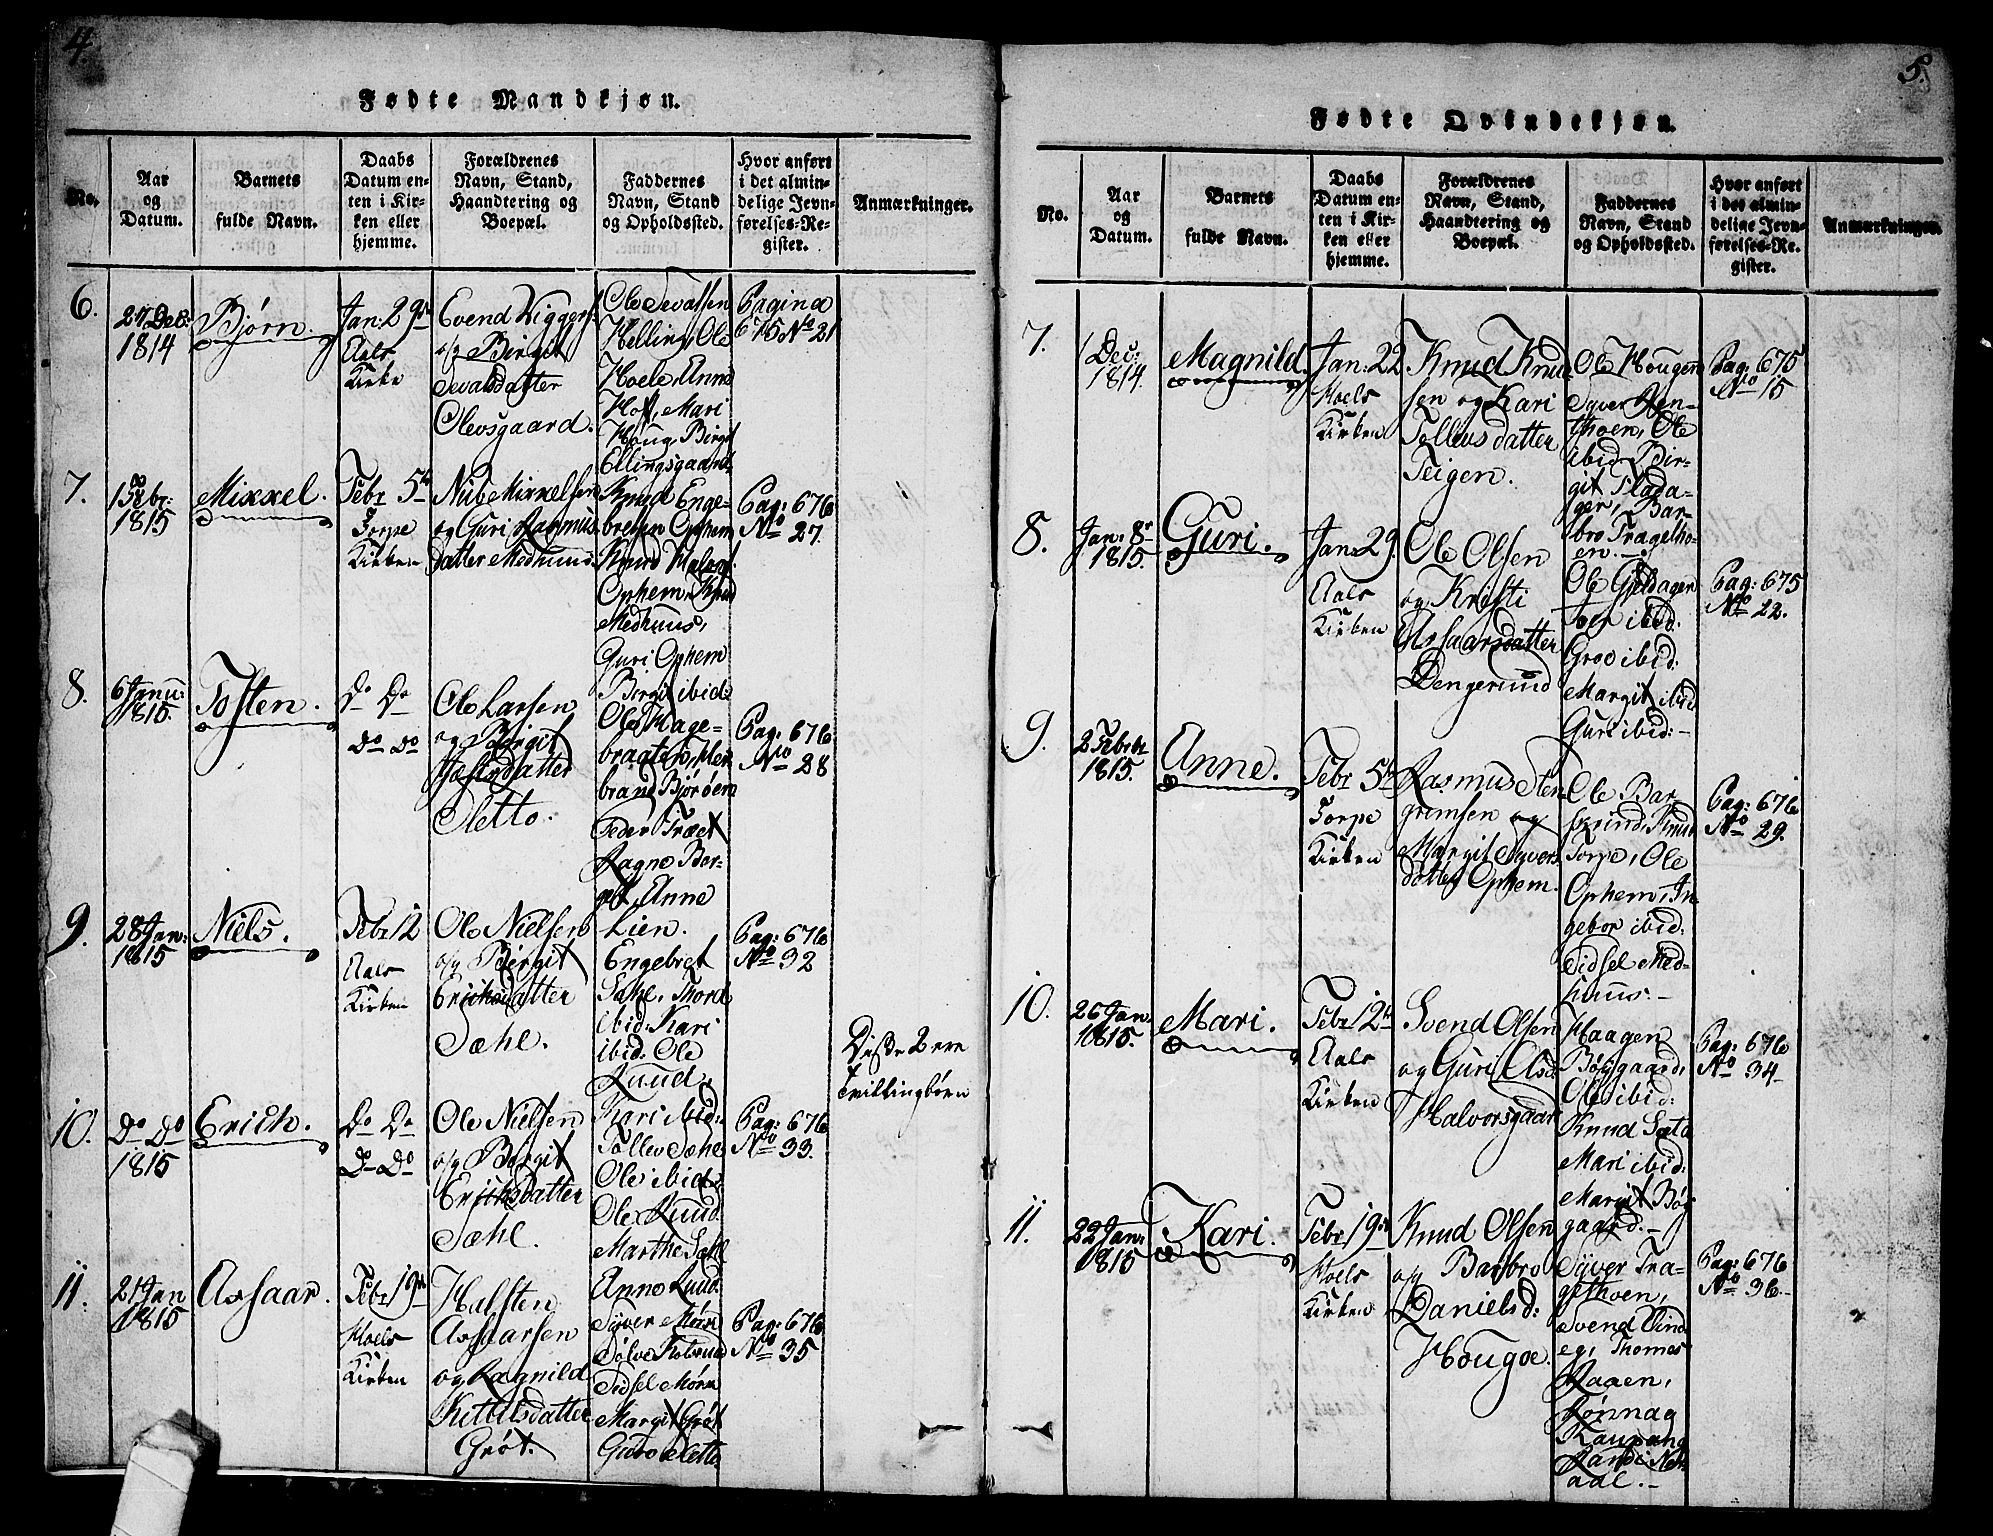 4.
Fødte Mandkjøn.
No.
Aar
og
Datum.
Barnets
fulde Navn.
Daabs
Datum en-
ten i Kir-
ken eller
hjemme.
Forældrenes
Navn, Stand,
Haandtering og
Boepæl.
Faddernes
Navn, Stand
og Opholdssted.
Hvor anført
i det almin-
delige Jevn-
førelses-Re-
gister.
Anmærkninger.
6.
27 Dec:
1814
Bjørn.
Jan: 29de
Aals
Kirke
Evend Viggers:
og Birgit
Sevalsdatter
Olevsgaard.
Ole Sevalsen
Helling, Ole
Hoele, Anne
Hof, Mari
Houg Birgit
Ellingsgaard
Pagina
675 No 21
7.
1815
Mikkel.
Febr 5te
Torpe
Kirken
Niels Mikkelsen
og Guri Rasmus
datter Medhuus.
Knud Enge-
bretsen Ophem
Knud
Ophem, Knud
Medhuus,
Guri Ophem
Birgit ibid:
Pag: 676
No 27.
8.
6 Janu:
1815.
Tosten.
Do Do
Do Do
Ole Larsen
og Birgit
datter
Sletto.
Ole Hage-
braaten,
brand Bjørøen
Peder Træet
Ragne Bor-
get, Anne
Lien.
Pag: 676
No 28
9.
28 Jan:
1815
Niels.
Febr 12
Aals
Kirken
Ole Nielsen
og Birgit
Ericksdatter
Sæhl.
Engebret
Sæhl, Thord
ibid: Kari
ibid. Ole
Ruud,
Kari ibid:
Pag: 676
No 32
Disse 2 ere
Tvillingbørn
10.
Do Do
1815
Erich.
Do Do
Do Do
Ole Nielsen
og Birgit
Ericksdatter
Sæhl.
Tollev Sæhl
Ole ibid:
Ole Ruud
Marthe Sæhl
Anne Ruud.
Pag: 676
No 33.
11.
21 Jan
1815
Assaar.
Febr 19de
Hoels
Kirken
Halsten
Assaarsen
og Ragnild
Kittilsdatter
Grøt.
Syver Møen
Sølve
Sidsel Møen
Margit Grøt
Guro Sletto.
Pag: 676
No 35
5.
Fødte Qvindekjøn.
No.
Aar
og
Datum.
Barnets
fulde Navn.
Daabs
Datum en-
ten i Kir-
ken eller
hjemme.
Forældrenes
Navn, Stand,
Haandtering og
Boepæl.
Faddernes
Navn, Stand
og Opholdssted.
Hvor anført
i det almin-
delige Jevn-
førelses-Re-
gister.
Anmærkninger.
7.
1 Dec:
1814.
Magnild.
Jan: 22
Hoels
Kirken
Knud Knud-
sen og Kari
Tollevsdatter
Teigen.
Ole Hougen
Syver
thoen, Ole
ibid: Bir-
git Flada-
ger, Bar-
bro Tragetho-
en.
Pag: 675
No 15
8.
Jan: 8de
1815.
Guri.
Jan: 29.
Aals
Kirken
Ole Olsen
og Kristi
Assaarsdatter
Dengerund
Ole Gjeldager
ibid:
Groe ibid:
Margit ibid
Guri ibid:
Pag: 675
No 22.
9.
2 Febr
1815.
Anne.
Febr 5te
Torpe
Kirken
Rasmus Sten-
grimsen og
Margit Syvers
datter Ophem.
Ole Bar-
skrind, Knud
Torpe, Ole
Ophem, In-
gebor ibid:
Sidsel Med-
huus.
Pag: 676
No 29.
10.
26 Jan:
1815.
Mari.
Febr 12te
Aals
Kirken
Svend Olsen
og Guri Olsd:
Halvorsgaar
Haagen
Bøygaard,
Ole ibid:
Knud Sata
Mari ibid:
Margit Bøy-
gaard.
Pag: 676
No 34
11.
22 Jan:
1815
Kari.
Febr 19de
Hoels
Kirken
Knud Olsen
og Barbro
Danielsd:
Hougoe.
Syver Tra-
gethoen,
Svend Vind-
eg, Thomes
Raaen,
Rønnag
Kaupang
Randi Nes-
aal.
Pag: 676
No 36.